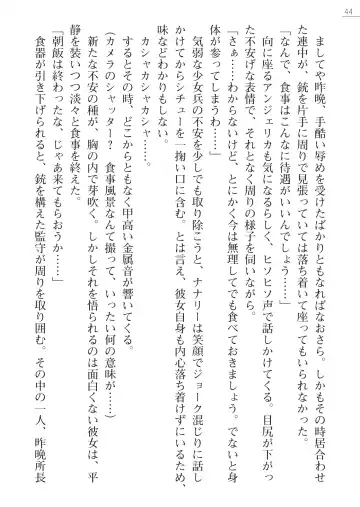 44
ましてや昨晩、手酷い辱めを受けたばかりともなればなおさら。しかもその時居合わせ
た連中が、銃を片手に周りで見張っていては落ち着いて座ってもいられなかった。
「なんで、食事はこんなに待遇がいいんでしょう……」
向に座るアンジェリカも気になるらしく、ヒソヒソ声で話しかけてくる。目尻が下がっ
た不安げな表情で、それとなく周りの様子を伺いながら。
「さぁ……わからないけど、とにかく今は無理してでも食べておきましょう。でないと身
体が参ってしまうわ……」
気弱な少女兵の不安を少しでも取り除こうと、ナナリーは笑顔でジョーク混じりに話し
かけてからシチューを一掬い口に含む。とは言え、彼女自身も内心落ち着けずにいるため、
味などわかりもしない。
カシャカシャカシャ……。
するとその時、どこからともなく甲高い金属音が響いてくる。
（カメラのシャッター？　食事風景なんて撮って、いったい何の意味が……）
新たな不安の種が、胸の内で芽吹く。しかしそれを悟られるのは面白くない彼女は、平
静を装いつつ淡々と食事を終えた。
「朝飯は終わったな、じゃあ来てもらおうか……」
食器が引き下げられると、銃を構えた監守が周りを取り囲む。その中の一人、昨晩所長